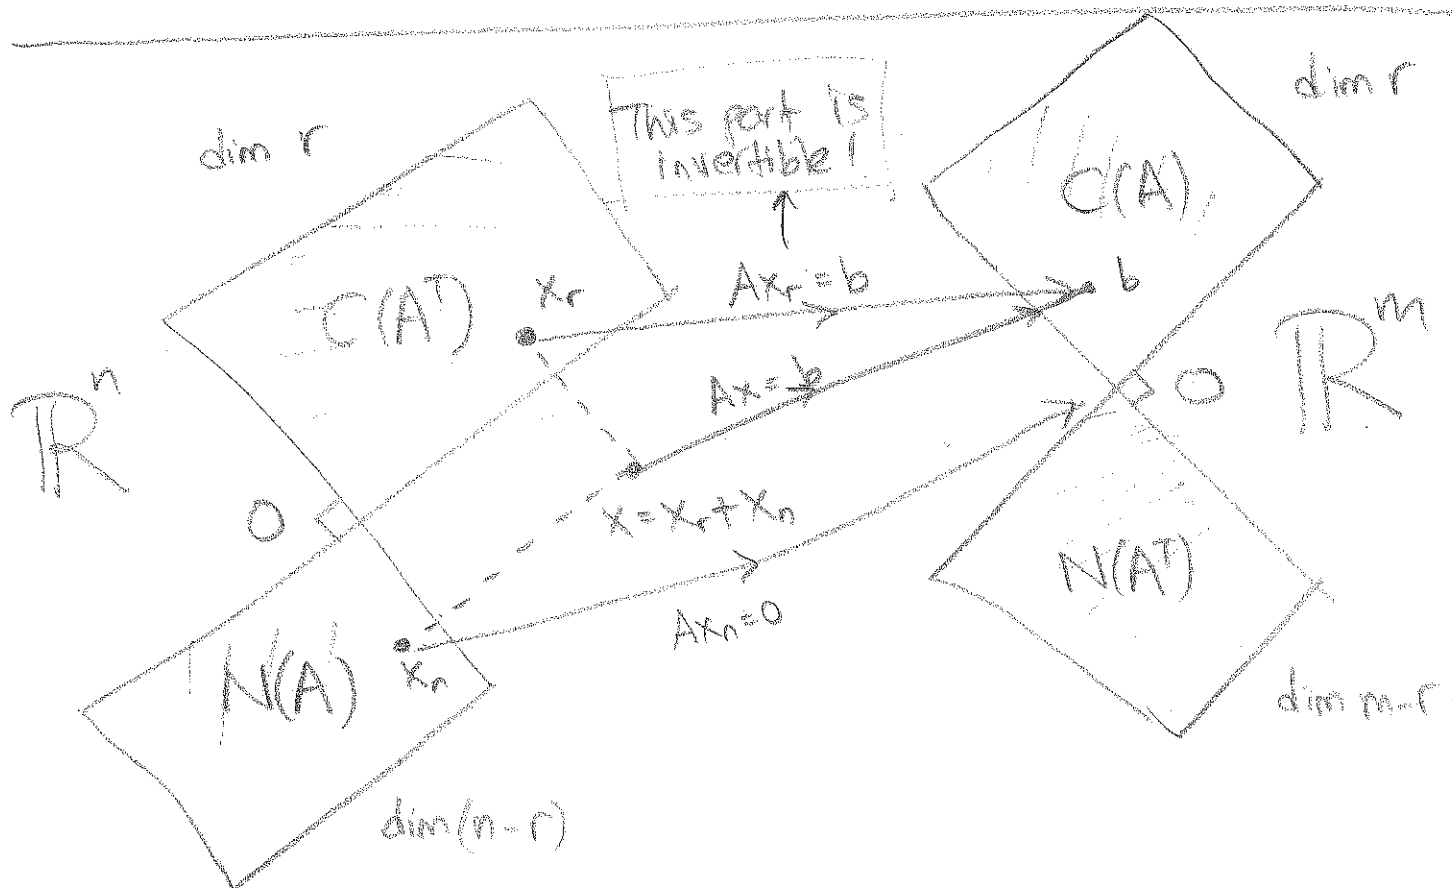 dim r
This part is
invertible!
dim r
C(A)
C(Aᵀ)
xᵣ
Axᵣ = b
b
ℝⁿ
ℝᵐ
Ax = b
0
0
x = xᵣ + xₙ
N(Aᵀ)
Axₙ = 0
N(A)
xₙ
dim m-r
dim(n-r)